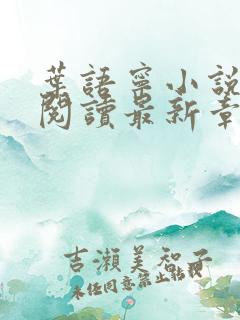 葉語寧小說
閱讀最新章
吉瀨美智子
未经同意禁止转载